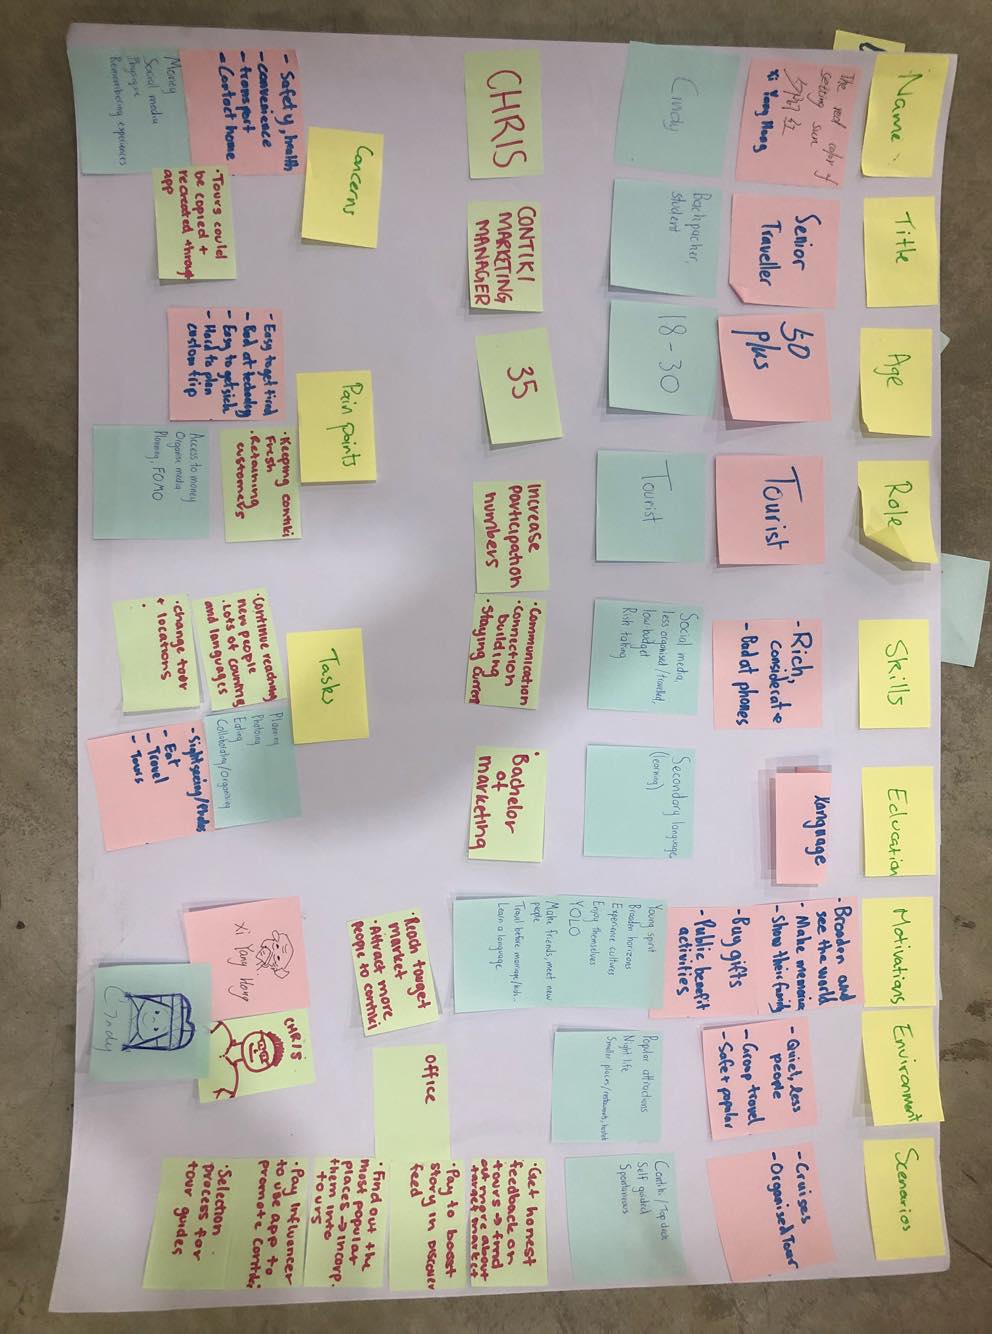 Name:
Title
Age
Role
Skills
Education
Motivations
Environment
Scenarios
The red color of
setting sun
Xi Yang Hong
Senior
Traveller
50
plus
Tourist
- Rich,
considerate
- Bad at phones
Language
- Broaden and
see the world
- Make memories
- Show their family
- Buy gifts
- Public benefit
activities
- Quiet, less
people
- Group travel
- Safe + popular
- Cruises
- Organised Tour
Cindy
Backpacker,
student
18 - 30
Tourist
Social media,
less organised/travelled,
low budget
Risk taking
Secondary language
(learning)
Young spirit
Broaden horizons
Experience cultures
Enjoy themselves
YOLO
Make friends, meet new
people
Travel before marriage/kids...
Learn a language
Popular attractions
Night life
Smaller places/restaurants, hostels
Contiki / Top deck
Self guided
Spontaneous
CHRIS
CONTIKI
MARKETING
MANAGER
35
Increase
participation
numbers
• Communication
• Connection
building
• Staying current
• Bachelor
of
marketing
• Reach target
market
• Attract more
people to contiki
office
• Get honest
feedback on
tours → find
out more about
target market
• Pay to boost
story in Discover
feed
• Find out the
most popular
places → incorp.
them into
tours
• Pay Influencer
to use app to
promote Contiki
• Selection
process for
tour guides
Concerns
- Safety, health
- convenience
- transport
- Contact home
Money
Social media
Remembering experiences
• Tours could
be copied +
recreated through
app
Pain points
- Easy to get tired
- Bad at technology
- Easy to get sick
- Hard to plan
custom trip
• Keeping contiki
Fresh
• Retaining
customers
Access to money
Organise media
Planning, FOMO
Tasks
• Continue reaching
new people
• Lots of countries
and languages
• change tour
+ locations
Planning
Photoing
Eating
Collaborating/Organising
- Sightseeing/Photos
- Eat
- Travel
- Tours
Xi Yang Hong
CHRIS
Cindy